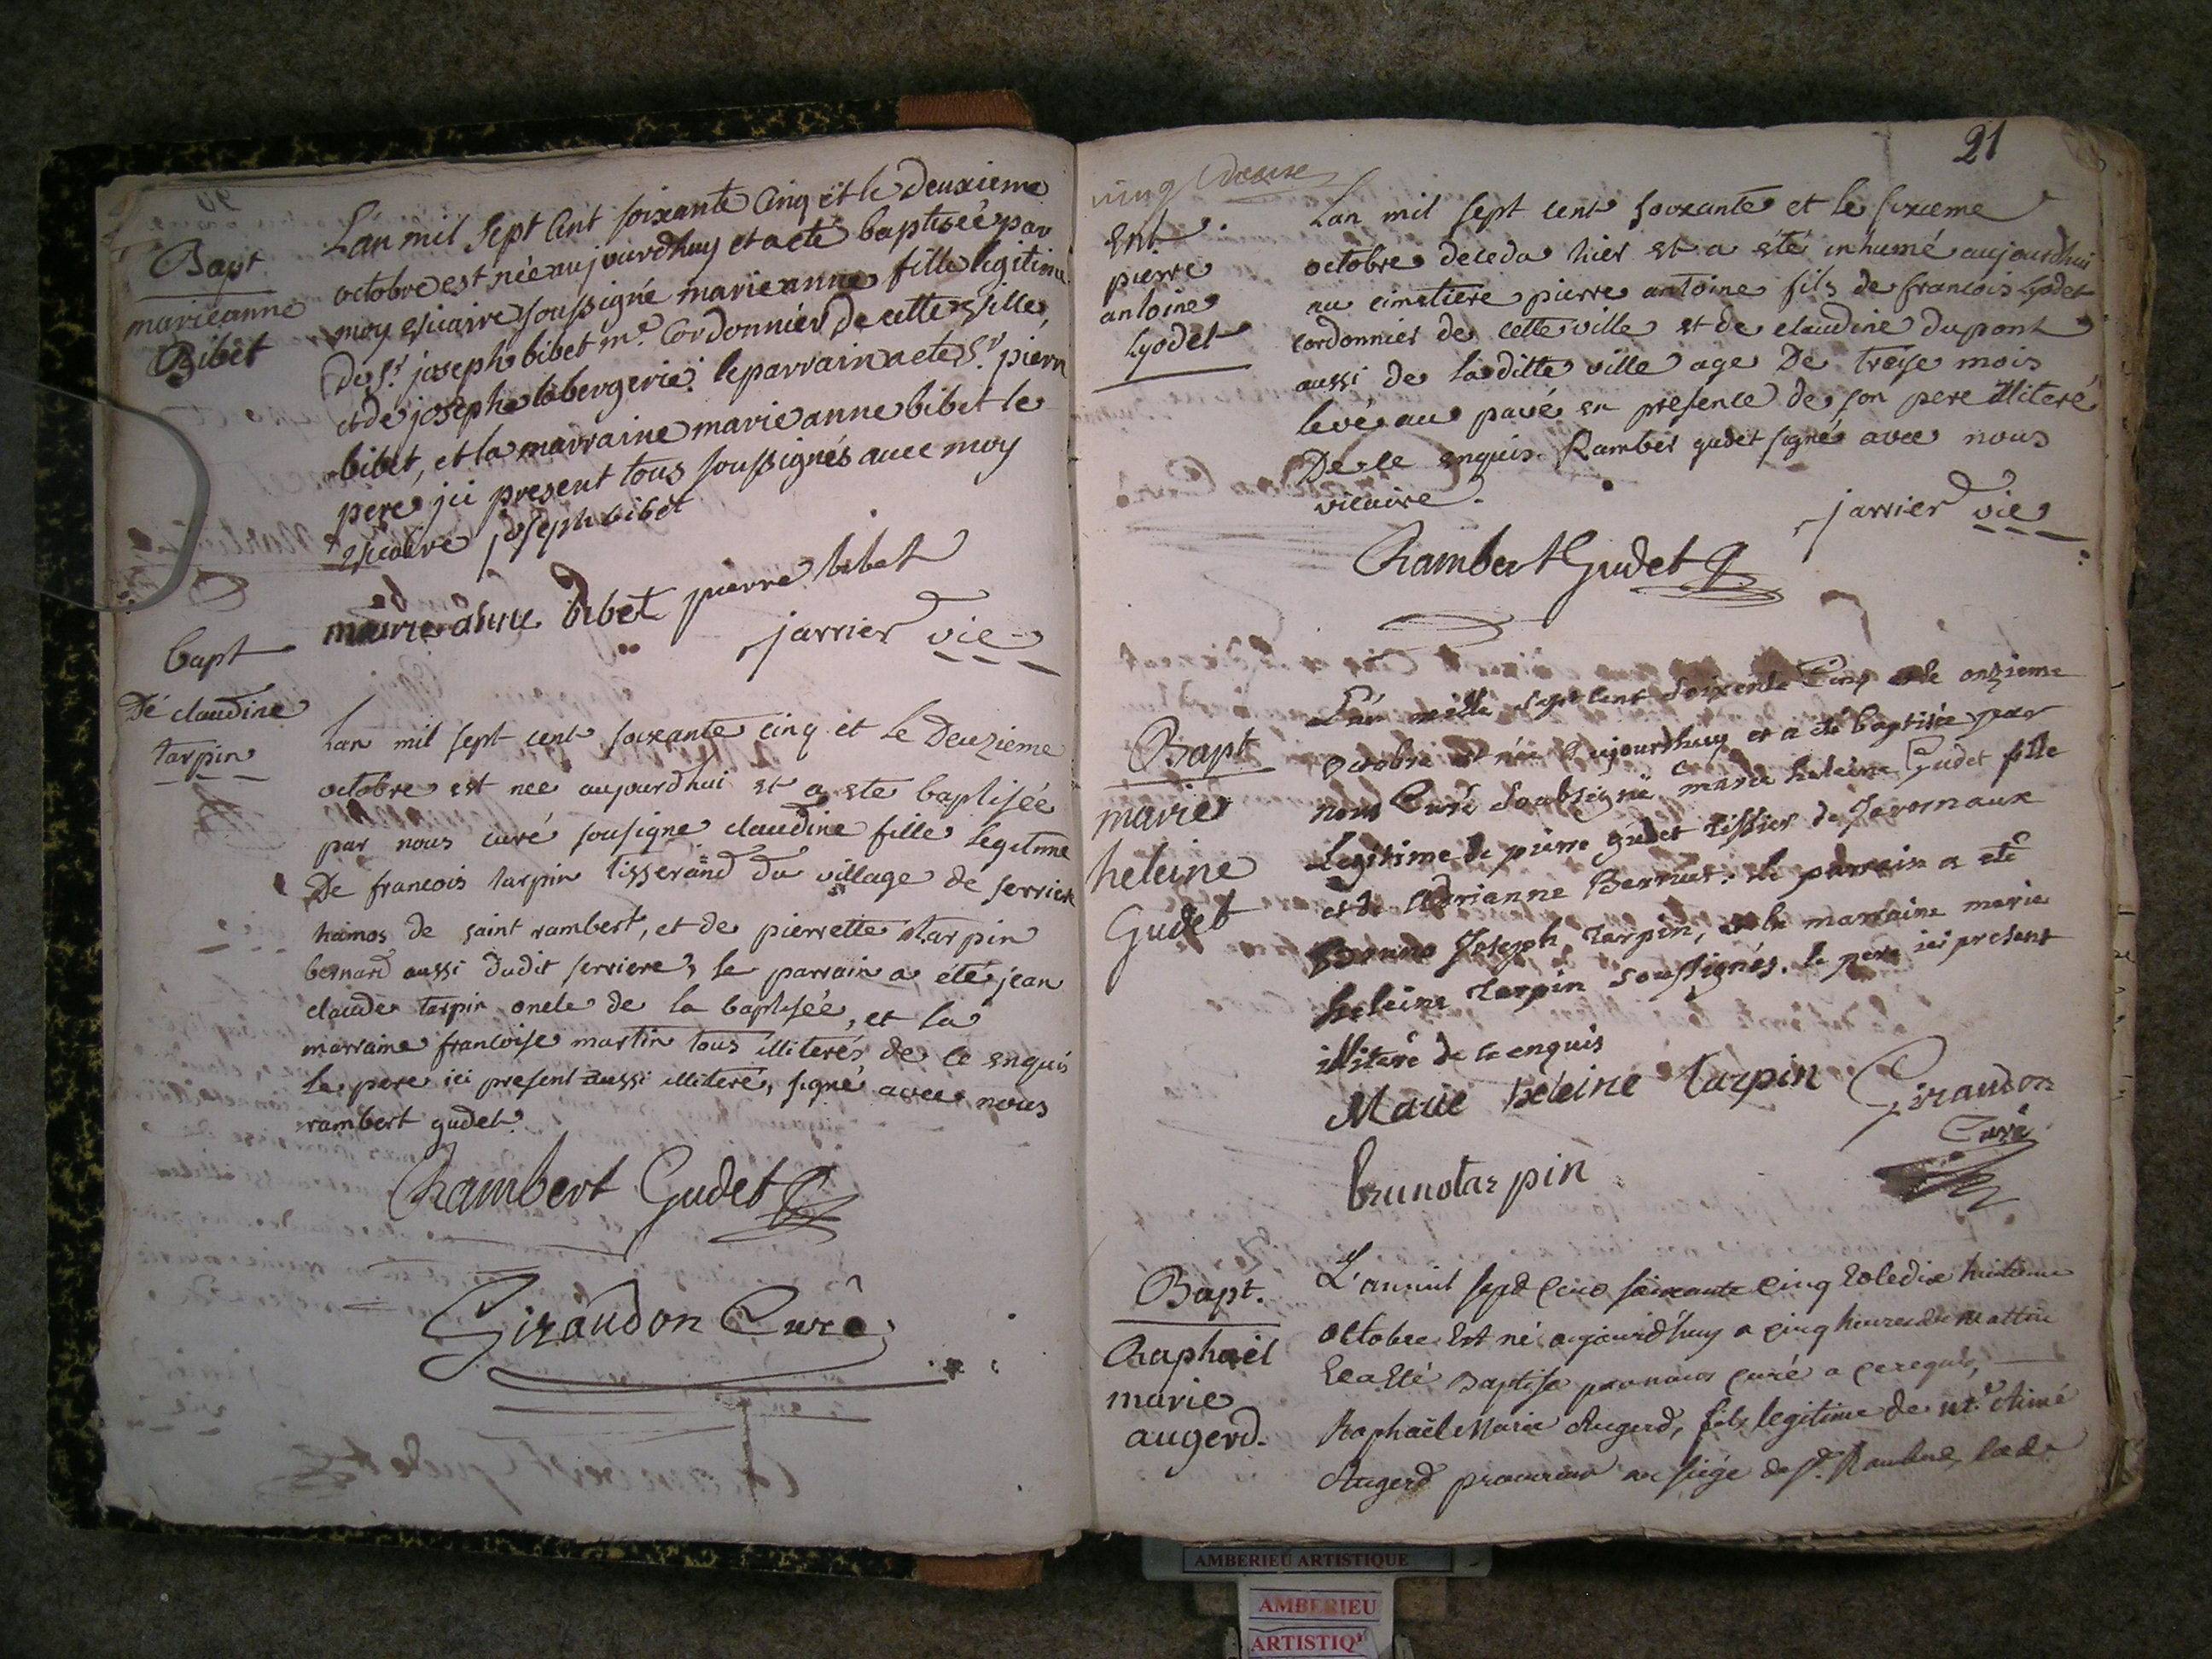 Bapt
marieanne
Bibet
L'an mil sept Cent soixante Cinq et le deuxieme
octobre est née aujourdhuy et a eté baptisée par
moy vicaire soussigné marieanne fille legitime
de Sr. joseph bibet me. Cordonnier de cette ville,
et de josephe labergerie: le parrain a eté Sr. pierre
bibet, et la marraine marie anne bibet le
pere ici present tous soussignés avec moy
vicaire joseph bibet
marie anne bibet pierre bibet
jarrier vic
bapt
De claudine
tarpin
Lan mil sept cent soixante cinq et le Deuzieme
octobre est nee aujourdhui et a ete baptisée
par nous curé sousigne claudine fille legitime
De francois tarpin tisserand du village de serriere
hamos de saint rambert, et de pierrette tarpin
bernard aussi dudit serriere, le parrain a été jean
claude tarpin oncle de la baptisée, et la
marraine francoise martin tous illiterés de ce enquis
le pere ici present aussi illiteré, signé avec nous
rambert gudet.
Rambert Gudet
Giraudon Curé
21
vingt
ent.
pierre
antoine
Lyodet
Lan mil sept cent soixante et le sixieme
octobre deceda hier et a été inhumé aujourdhui
au cimetiere pierre antoine fils de francois Lyodet
cordonnier de cette ville et de claudine dupont
aussi de laditte ville age De treize mois
levé au pavé en presence de son pere illiteré
De ce enquis Rambert gudet signé avec nous
vicaire.
jarrier vic
Rambert Gudet
Bapt
marie
heleine
Gudet
L'an mille sept cent soixente Cinq et le onzieme
octobre est née aujourdhuy et a été baptisée par
nous Curé soubsigné marie heleine Gudet fille
Legitime de pierre gudet tissier de Javornaux
et de Adrianne Bernut: le parrain a eté
Bruno Joseph Tarpin, et la marraine marie
heleine Tarpin soussignés. le pere ici present
illiteré de ce enquis
Marie heleine tarpin Giraudon
Curé
bruno tarpin
Bapt.
Raphaël
marie
augerd.
L'an mil sept cent soixante cinq et le dix huitieme
octobre est né aujourd'huy a cinq heures du mattin
et a été baptisé par nous curé a ce requis,
Raphaël Marie Augerd, fils legitime de me. Aimé
Augerd procureur au siége de st. Rambert, et de
AMBERIEU ARTISTIQUE
AMBERIEU
ARTISTIQ